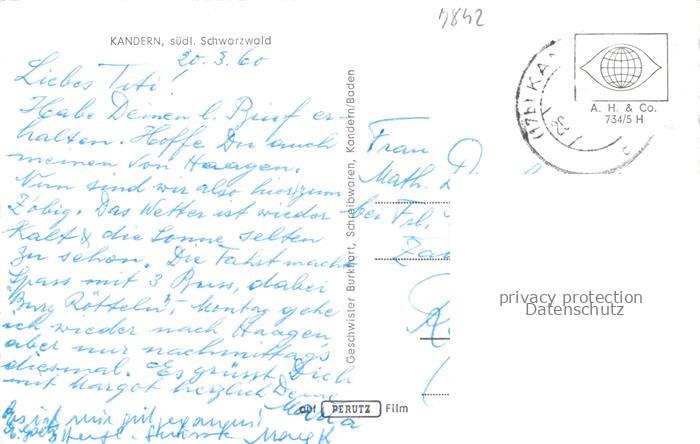 5842
KANDERN, südl. Schwarzwald
20.3.60
Liebes Titi!
Habe Deinen l. Brief er-
halten. Hoffe Du auch
meinen von Haagen.
Nun sind wir also hier zum
Zobig. Das Wetter ist wieder
kalt & die Sonne selten
zu sehen. Die Fahrt macht
Spass mit 3 Buss, dabei
"Burg Rötteln". Montag gehe
ich wieder nach Haagen,
aber nur nachmittags
diesmal. Es grüsst Dich
mit Margot herzlich Deine
Maria
mir gut
Geschwister Burkhart, Schreibwaren, Kandern/Baden
auf PERUTZ Film
(17b) KAN
A. H. & Co.
734/5 H
Frau
Math.
bei Frl.
privacy protection
Datenschutz